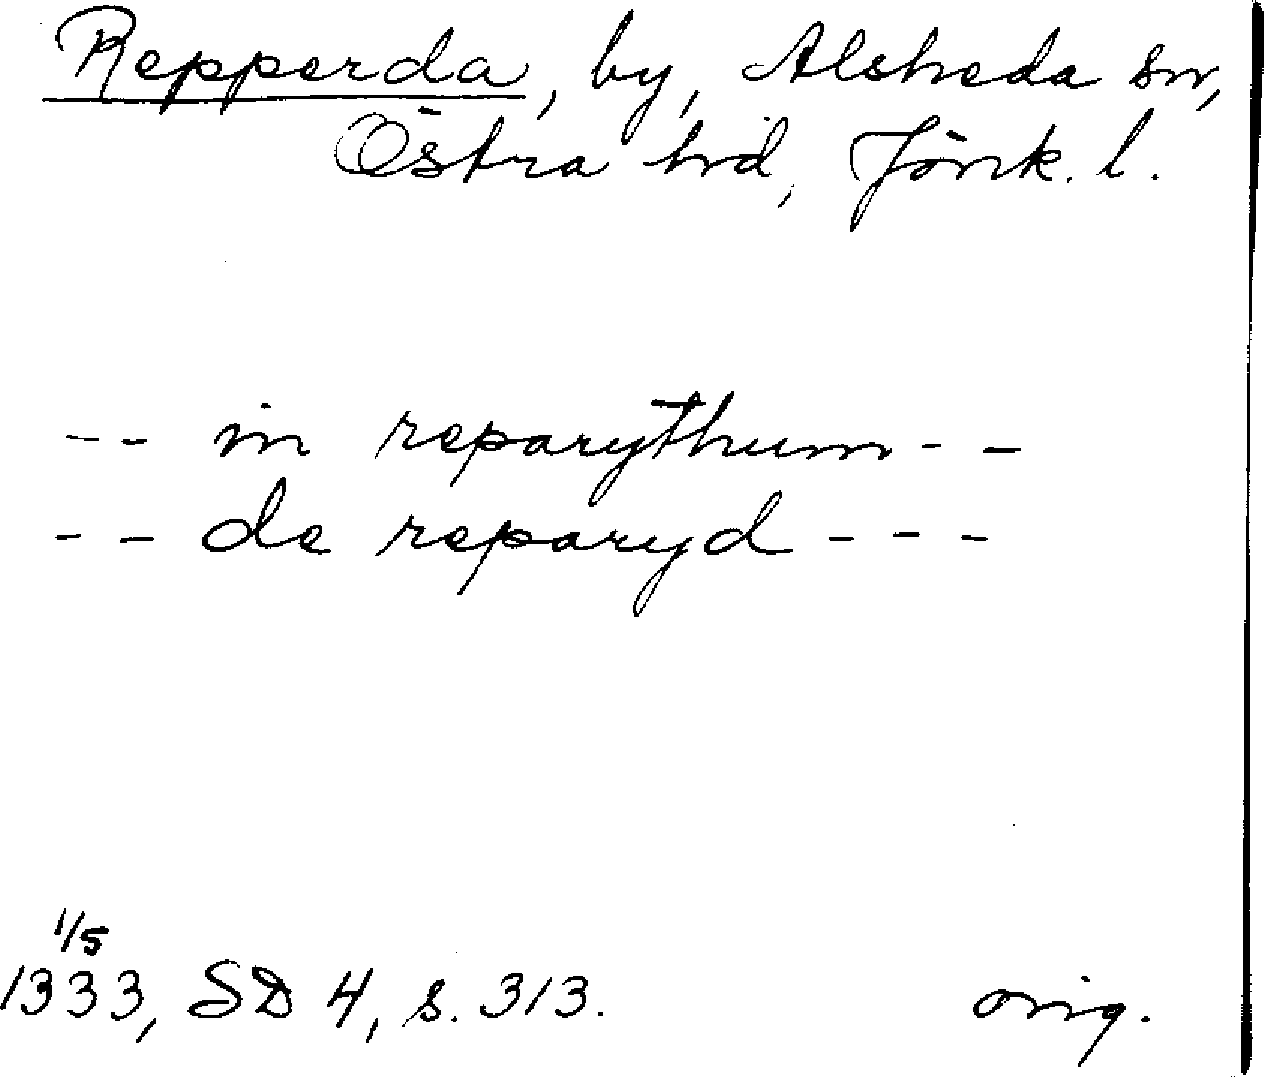 Repperda, by, Alsheda sn,
Östra hd, Jönk. l.
-- in reparythum --
-- de reparyd ---
1/5
1333, SD 4, s. 313. orig.